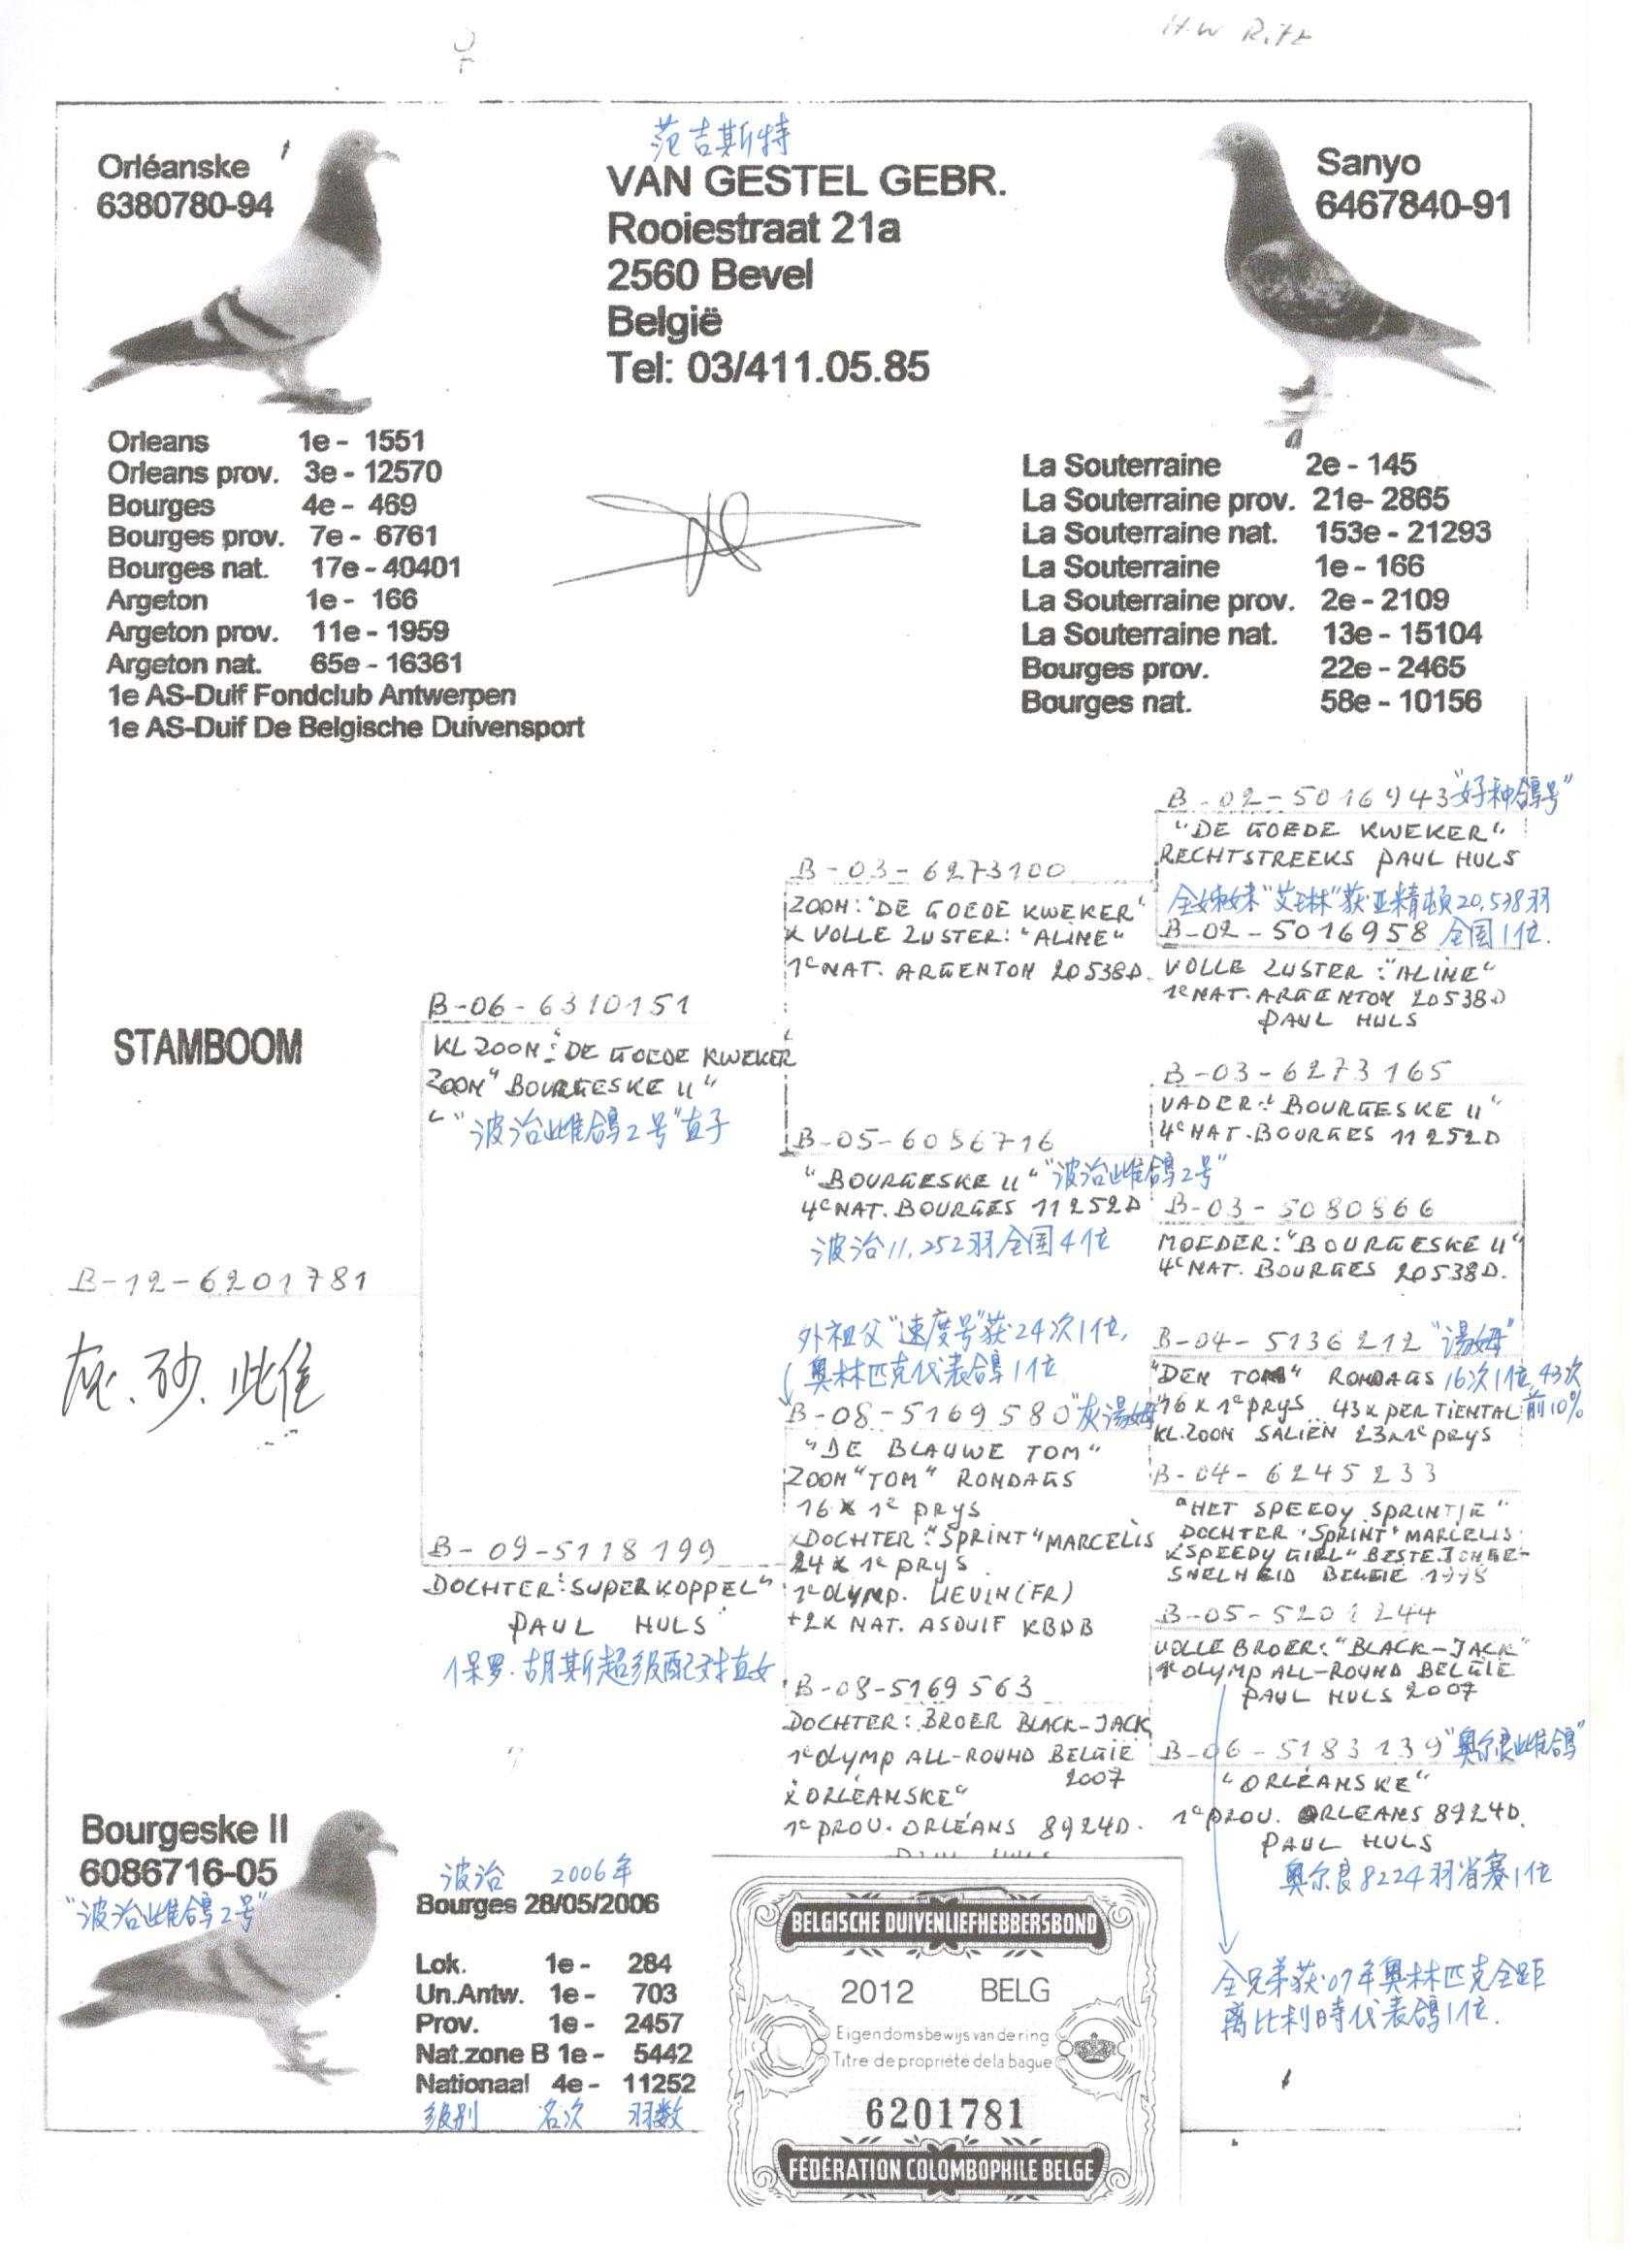 H.W Ritz
♀
Orléanske
6380780-94
范吉斯特
VAN GESTEL GEBR.
Rooiestraat 21a
2560 Bevel
België
Tel: 03/411.05.85
Sanyo
6467840-91
Orleans 1e - 1551
Orleans prov. 3e - 12570
Bourges 4e - 469
Bourges prov. 7e - 6761
Bourges nat. 17e - 40401
Argeton 1e - 166
Argeton prov. 11e - 1959
Argeton nat. 65e - 16361
1e AS-Duif Fondclub Antwerpen
1e AS-Duif De Belgische Duivensport
La Souterraine 2e - 145
La Souterraine prov. 21e- 2865
La Souterraine nat. 153e - 21293
La Souterraine 1e - 166
La Souterraine prov. 2e - 2109
La Souterraine nat. 13e - 15104
Bourges prov. 22e - 2465
Bourges nat. 58e - 10156
STAMBOOM
B-12-6201781
灰.砂.雌
B-06-6310151
KL ZOON: "DE GOEDE KWEKER
ZOON "BOURGESKE II"
"波治雌鸽2号"直子
B-09-5118199
DOCHTER: "SUPERKOPPEL"
PAUL HULS
保罗.胡斯超级配对直女
B-03-6273100
ZOON: "DE GOEDE KWEKER"
x VOLLE ZUSTER: "ALINE"
1e NAT. ARGENTON 20538D.
B-05-6086716
"BOURGESKE II" "波治雌鸽2号"
4e NAT. BOURGES 11252D
波治11,252羽全国4位
外祖父"速度号"获24次1位,
奥林匹克代表鸽1位
B-08-5169580 "灰湯姆"
"DE BLAUWE TOM"
ZOON "TOM" RONDAGS
16 x 1e PRYS
x DOCHTER: "SPRINT" MARCELIS
24 x 1e PRYS
1e OLYMP. LIEVIN (FR)
+2x NAT. ASDUIF KBDB
B-08-5169563
DOCHTER: BROER BLACK-JACK
1e OLYMP ALL-ROUND BELGIE
2007
x ORLÉANSKE"
1e PROV. ORLÉANS 8924D.
B-02-5016943 "好种鸽号"
"DE GOEDE KWEKER"
RECHTSTREEKS PAUL HULS
全姊妹"艾琳"获亚精頓20,538羽
B-02-5016958 全国1位.
VOLLE ZUSTER: "ALINE"
1e NAT. ARGENTON 20538D
PAUL HULS
B-03-6273165
VADER: "BOURGESKE II"
4e NAT. BOURGES 11252D
B-03-5080866
MOEDER: "BOURGESKE II"
4e NAT. BOURGES 20538D.
B-04-5136212 "湯姆"
"DEN TOM" RONDAGS 16次1位, 43次
16 x 1e PRYS 43x PER TIENTAL 前10%
KL.ZOON SALIEN 23x1e PRYS
B-04-6245233
"HET SPEEDY SPRINTJE"
DOCHTER "SPRINT" MARCELIS
x "SPEEDY GIRL" BESTE JONGE-
SNELHEID BELGIE 1998
B-05-5201244
VOLLE BROER: "BLACK-JACK"
1e OLYMP ALL-ROUND BELGIE
PAUL HULS 2007
B-06-5183139 "奥尔良雌鸽"
"ORLÉANSKE"
1e PROV. ORLEANS 8924D.
PAUL HULS
奥尔良8224羽省赛1位
全兄弟获'07年奥林匹克全距
离比利時代表鸽1位.
Bourgeske II
6086716-05
"波治雌鸽2号"
波治 2006年
Bourges 28/05/2006
Lok. 1e - 284
Un.Antw. 1e - 703
Prov. 1e - 2457
Nat.zone B 1e - 5442
Nationaal 4e - 11252
级别 名次 羽数
BELGISCHE DUIVENLIEFHEBBERSBOND
2012 BELG
Eigendomsbewijs van de ring
Titre de propriété de la bague
6201781
FÉDÉRATION COLOMBOPHILE BELGE